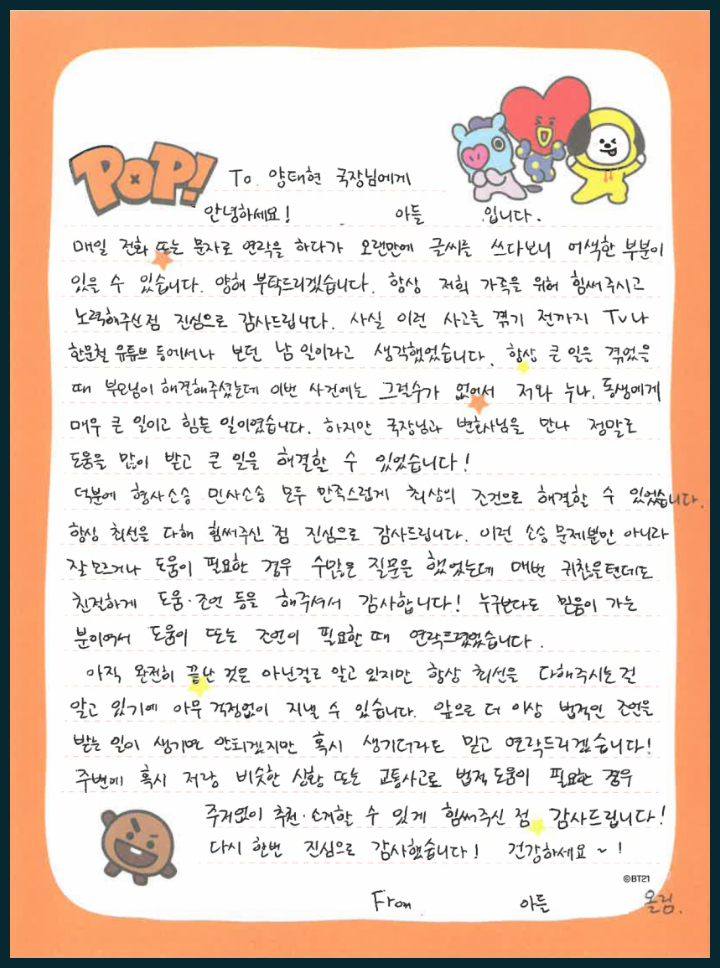 POP!
To. 양태현 국장님에게
안녕하세요! 아들 입니다.
매일 전화 또는 문자로 연락을 하다가 오랜만에 글씨를 쓰다보니 어색한 부분이
있을 수 있습니다. 양해 부탁드리겠습니다. 항상 저희 가족을 위해 힘써주시고
노력해주신점 진심으로 감사드립니다. 사실 이런 사고를 겪기 전까지 Tv나
한문철 유튜브 등에서나 보던 남 일이라고 생각했었습니다. 항상 큰 일을 겪었을
때 부모님이 해결해주셨는데 이번 사건에는 그럴수가 없어서 저와 누나, 동생에게
매우 큰 일이고 힘든 일이였습니다. 하지만 국장님과 변호사님을 만나 정말로
도움을 많이 받고 큰 일을 해결할 수 있었습니다!
덕분에 형사소송 민사소송 모두 만족스럽게 최상의 조건으로 해결할 수 있었습니다.
항상 최선을 다해 힘써주신 점 진심으로 감사드립니다. 이런 소송 문제뿐만 아니라
잘 모르거나 도움이 필요한 경우 수많은 질문을 했었는데 매번 귀찮을텐데도
친절하게 도움·조언 등을 해주셔서 감사합니다! 누구보다도 믿음이 가는
분이여서 도움이 또는 조언이 필요한 때 연락드렸었습니다.
아직 완전히 끝난 것은 아닌걸로 알고 있지만 항상 최선을 다해주시는걸
알고 있기에 아무 걱정없이 지낼 수 있습니다. 앞으로 더 이상 법적인 조언을
받는 일이 생기면 안되겠지만 혹시 생기더라도 믿고 연락드리겠습니다!
주변에 혹시 저랑 비슷한 상황 또는 교통사고로 법적 도움이 필요한 경우
주저없이 추천·소개할 수 있게 힘써주신 점 감사드립니다!
다시 한번 진심으로 감사했습니다! 건강하세요~!
©BT21
From 아들 올림.